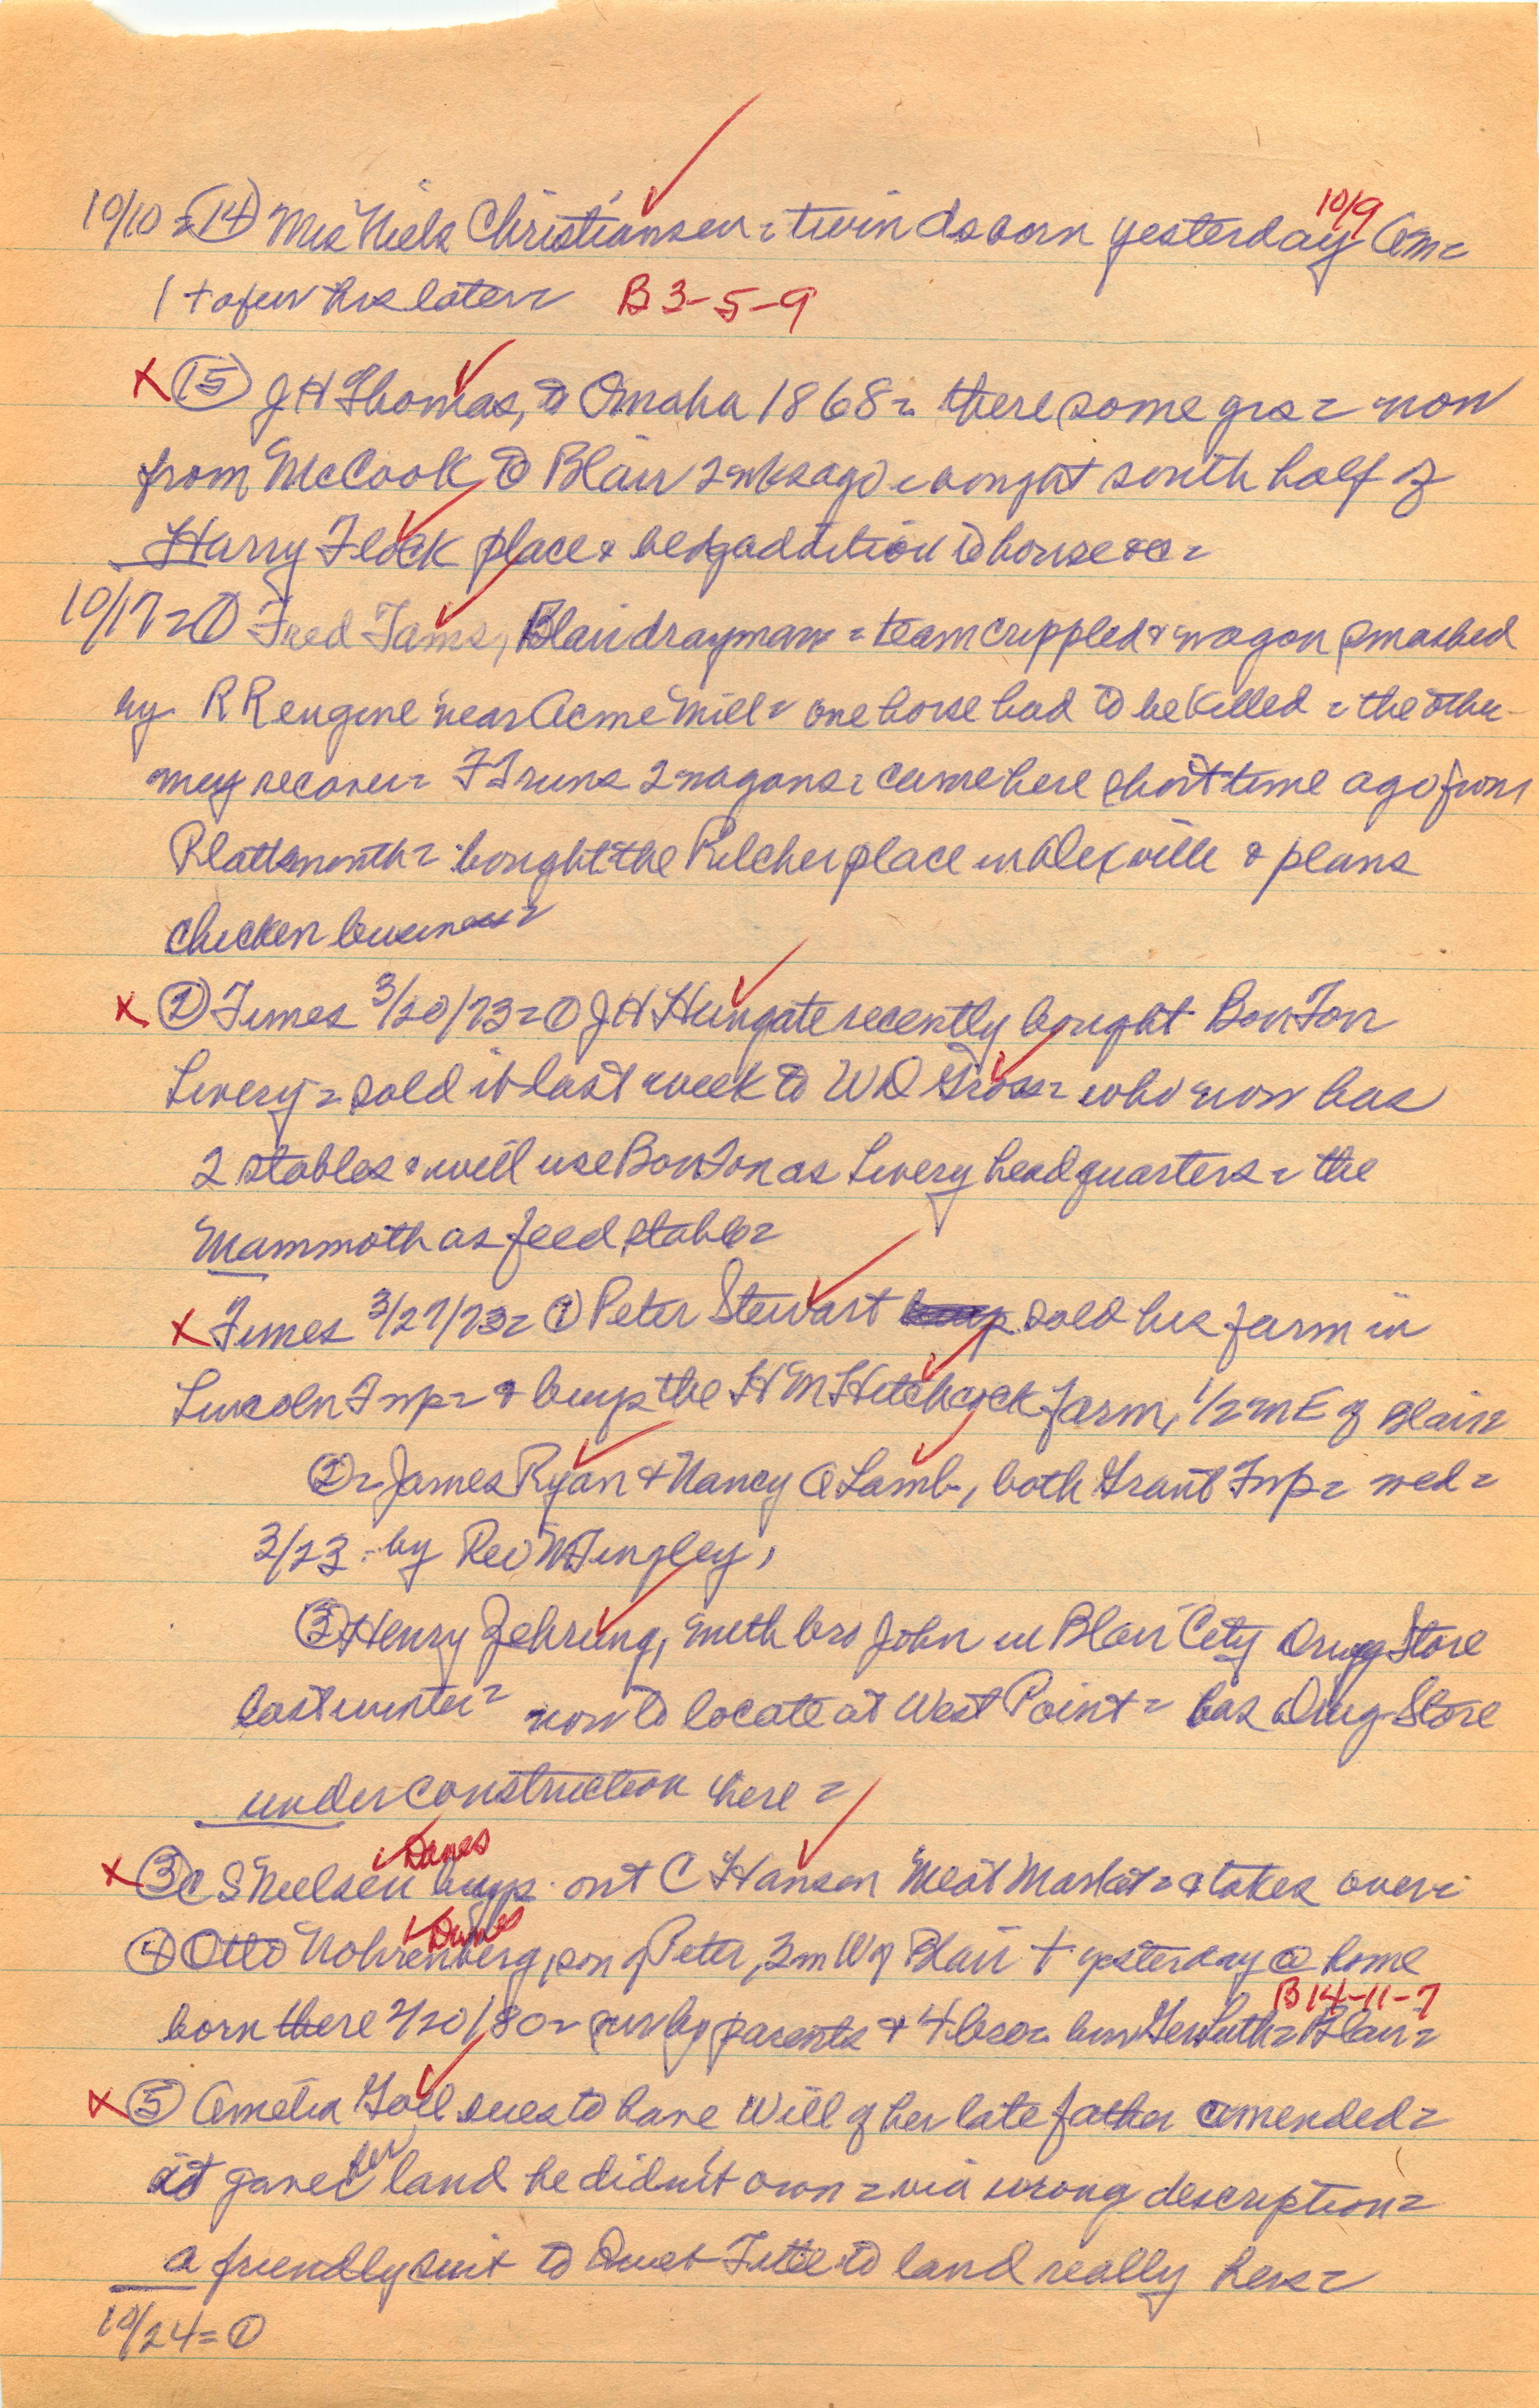 10/10 = (14) Mrs Niels Christiansen = twin ds born yesterday 10/9 am =
1 + a few hrs later = B3-5-9
x (15) J H Thomas, to Omaha 1868 = there some yrs = now
from McCook to Blair 2 wks ago = bought south half of
Harry Flock place & bldg addition to house &c =
10/17 = (1) Fred Tams, Blair drayman = team crippled & wagon smashed
by R R engine near Acme Mill = one horse had to be killed = the other
may recover = F T runs 2 wagons = came here short time ago from
Plattsmouth = bought the Pilcher place in Dexville & plans
chicken business =
x (2) Times 3/20/73 = (1) J H Hungate recently bought Bon Ton
Livery = sold it last week to W D Gross = who now has
2 stables & will use Bon Ton as Livery headquarters = the
Mammoth as feed stable =
x Times 3/27/73 = (1) Peter Stewart sold his farm in
Lincoln Twp = & buys the H M Hitchcock farm, 1/2 m E of Blair =
(2) = James Ryan & Nancy A Lamb, both Grant Twp = wed =
3/23 = by Rev Tingley,
(3) Henry Zehrung, with bro John in Blair City Drug Store
last winter = now to locate at West Point = has Drug Store
under construction here =
x (3) C S Nielsen Danes buys out C Hansen Meat Market = & takes over =
(4) Otto Nohrenberg, son of Peter, 3 m W of Blair + yesterday @ home
born there 2/20/80 = surv by parents & 4 bros = bur Ger Luth = Blair = B 14-11-7
x (5) Amelia Goll sues to have Will of her late father amended =
it gave her land he didn't own = via wrong description =
a friendly suit to Quiet Title to land really hers =
10/24 = (1)